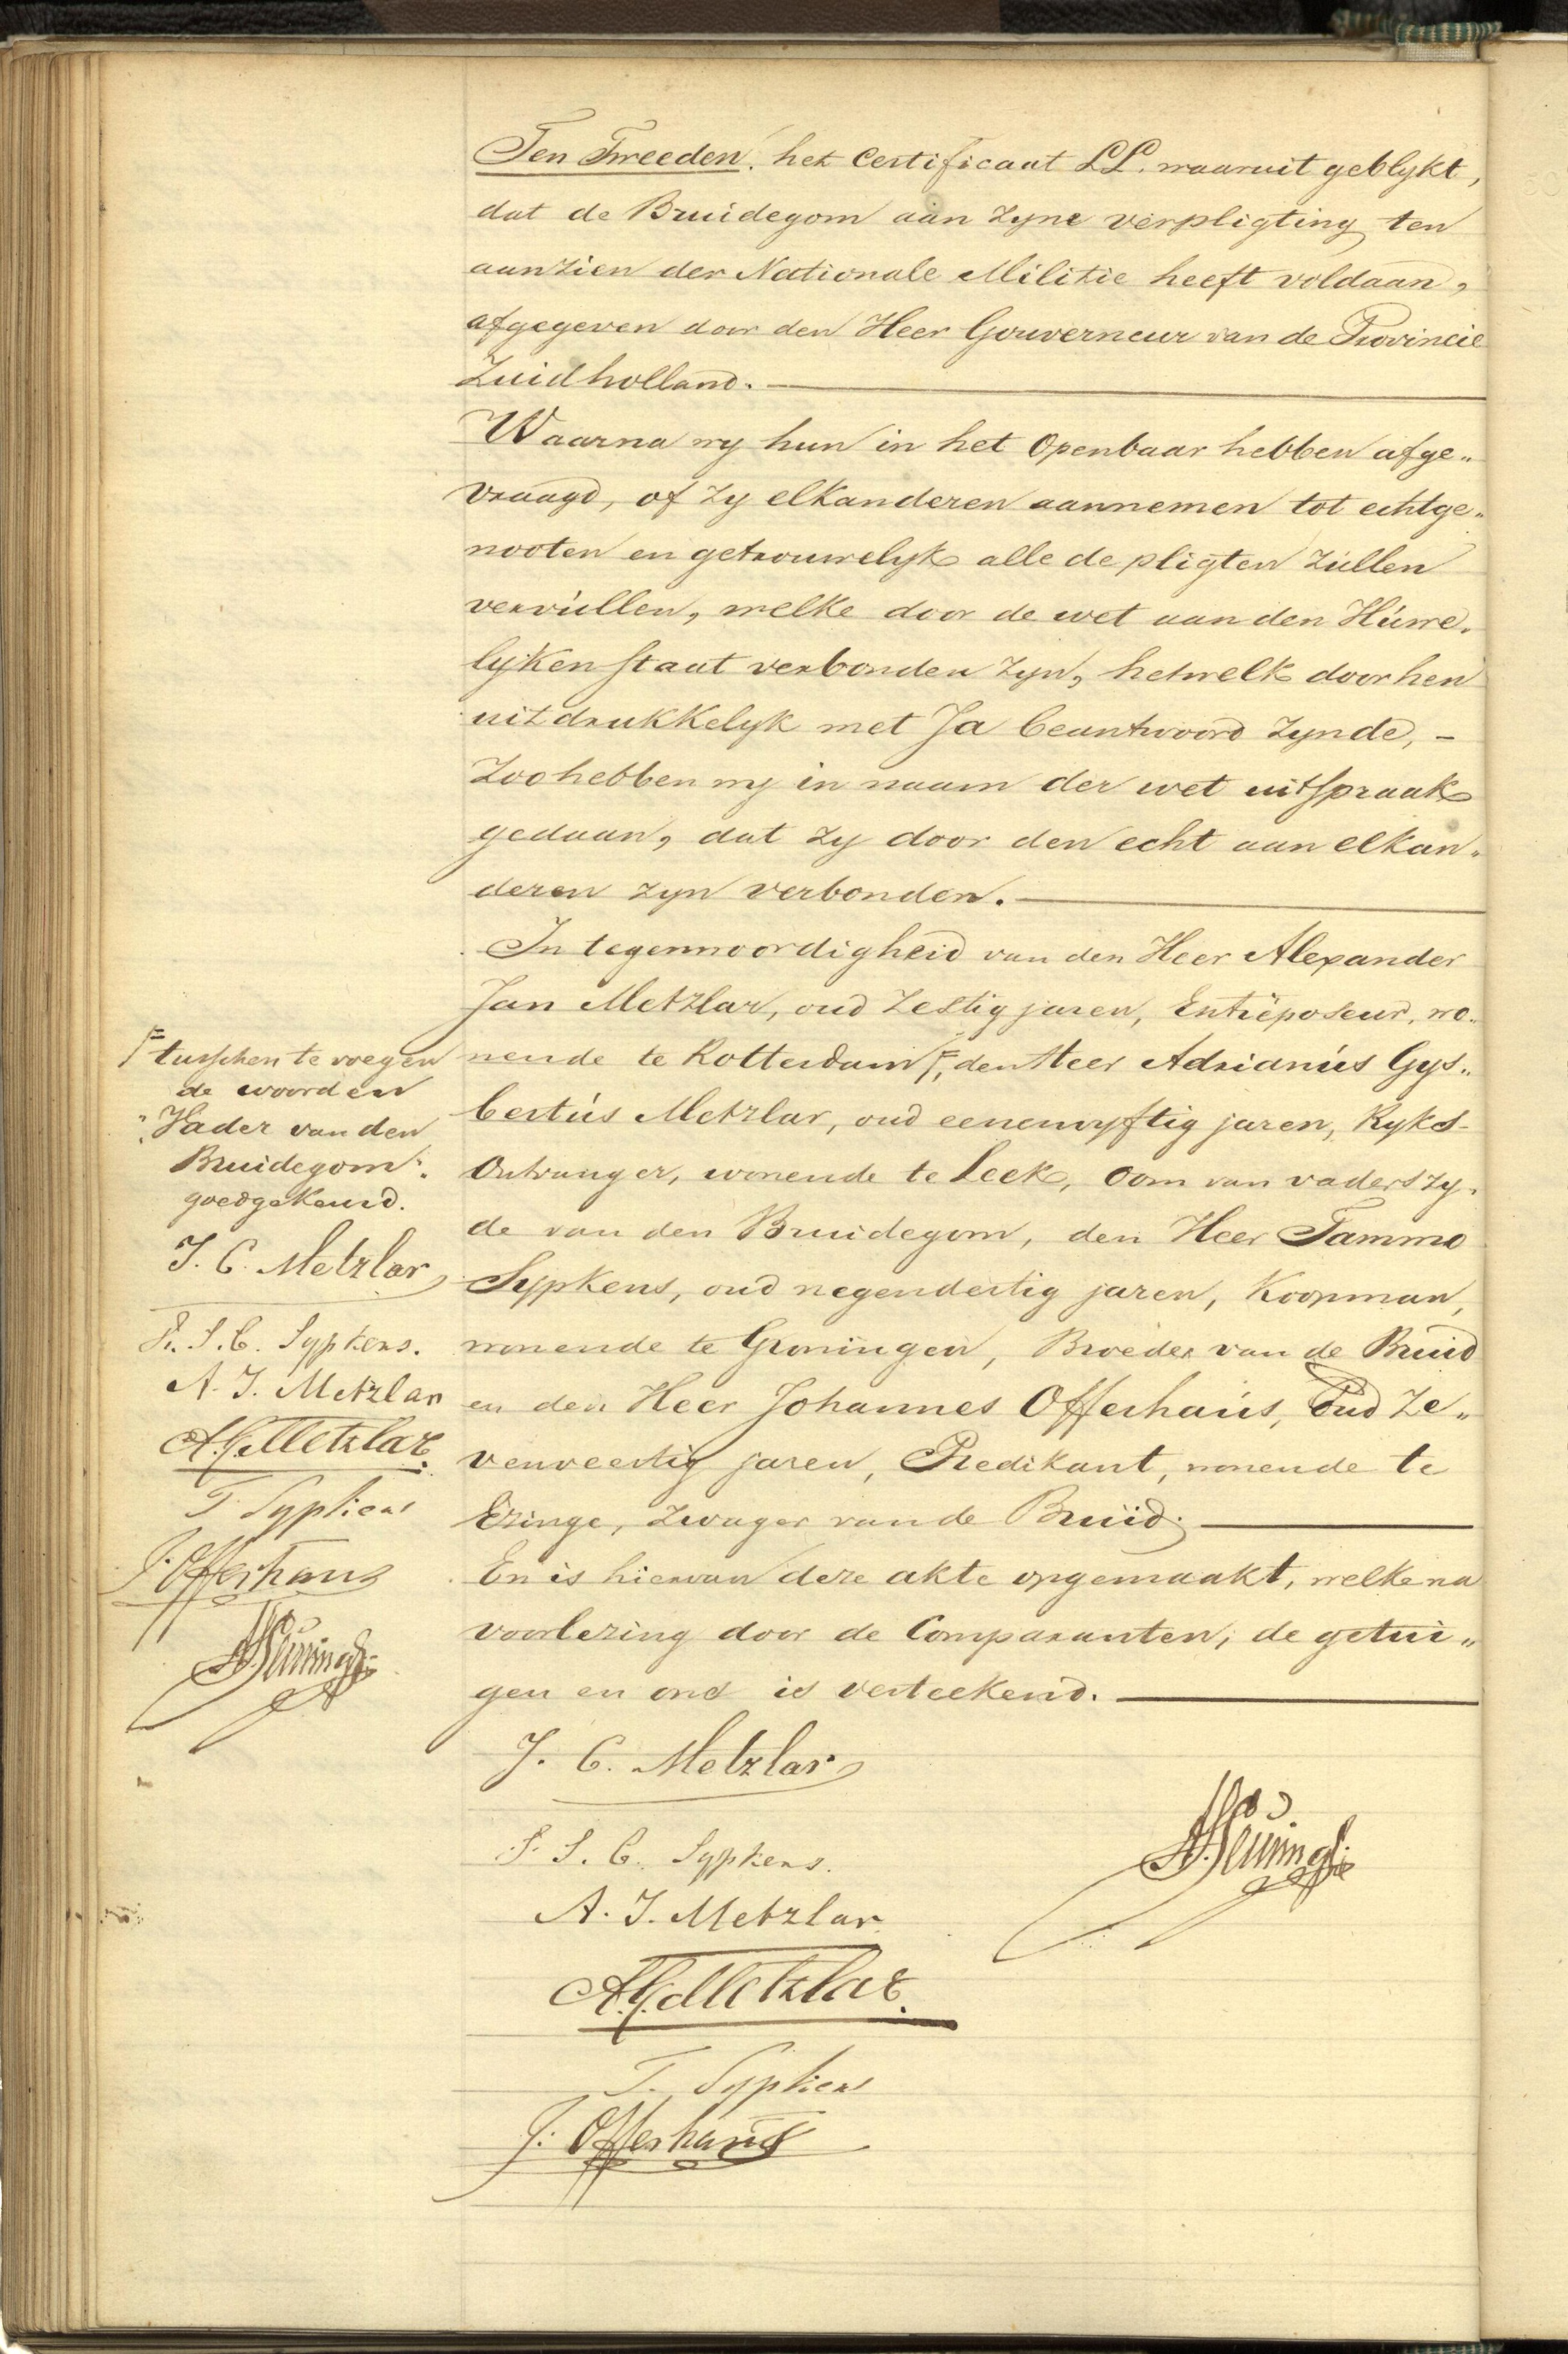 Ten Tweeden. het Certificaat LL. waaruit geblykt,
dat de Bruidegom aan zyne verpligting ten
aanzien der Nationale Militie heeft voldaan,
afgegeven door den Heer Gouverneur van de Provincie
Zuidholland.
Waarna wy hun in het Openbaar hebben afge„
vraagd, of zy elkanderen aannemen tot echtge„
nooten en getrouwelyk alle de pligten zullen
vervullen, welke door de wet aan den Huwe„
lyken staat verbonden zyn, hetwelk door hen
uitdrukkelyk met Ja beantwoord zynde, –
Zoo hebben wy in naam der wet uitspraak
gedaan, dat zy door den echt aan elkan„
deren zyn verbonden.
In tegenwoordigheid van den Heer Alexander
Jan Metzlar, oud Zestig jaren, Entreposeur, wo„
nende te Rotterdam, den Heer Adrianus Gys„
bertus Metzlar, oud eenenvyftig jaren, Ryks-
Ontvanger, wonende te Leek, Oom van vaders zy„
de van den Bruidegom, den Heer Tammo
Sypkens, oud negendertig jaren, Koopman,
wonende te Groningen, Broeder van de Bruid
en den Heer Johannes Offerhaus, Oud Ze„
venveertig jaren, Predikant, wonende te
Ezinge, Zwager van de Bruid.
En is hiervan deze akte opgemaakt, welke na
voorlezing door de Comparanten, de getui„
gen en ons is verteekend.
J. C. Metzlar
S. C. Sypkens.
A. J. Metzlar
A.G. Metzlar.
T. Sypkens
J. Offerhaus
tusschen te voegen
de woorden
„Vader van den
Bruidegom„
goedgekeurd.
J. C. Metzlar
S. C. Sypkens.
A. J. Metzlar
A.G. Metzlar.
T. Sypkens
J. Offerhaus